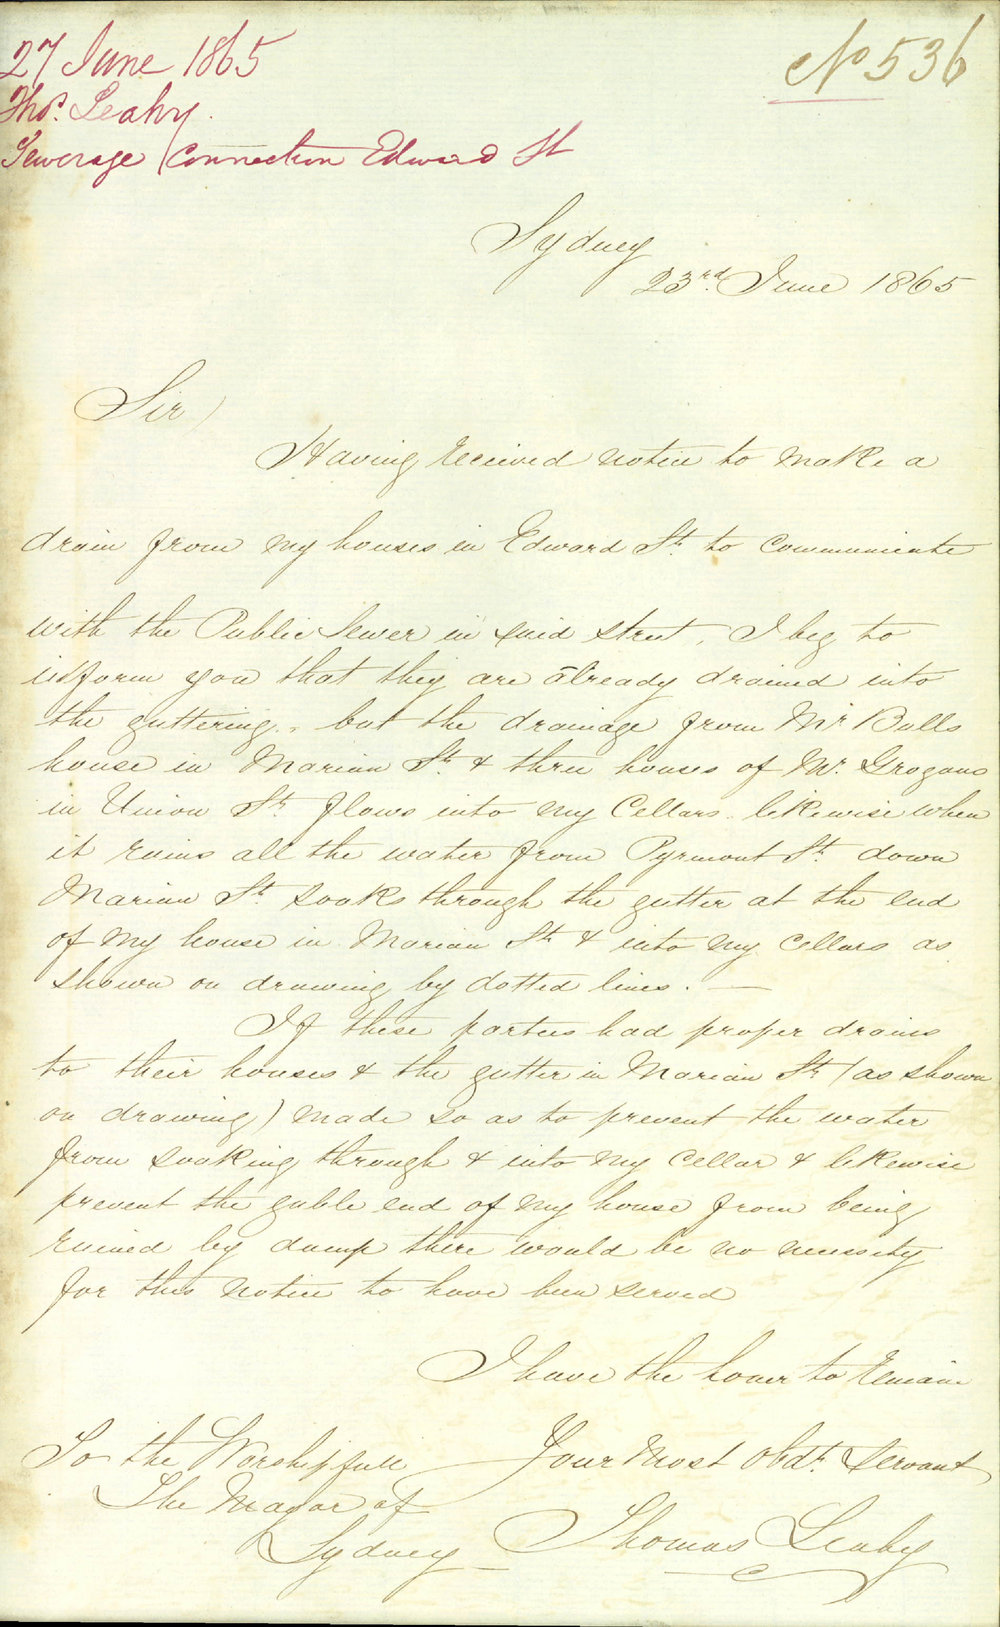 27 June 1865
Thos. Leahy.
Sewerage Connection Edward St
No 536
Sydney
23rd. June 1865
Sir)
Having received notice to make a
drain from my houses in Edward St. to communicate
with the Public Sewer in said street, I beg to
inform you that they are already drained into
the guttering, but the drainage from Mr Bulls
house in Marian St. & three houses of Mr. Grogans
in Union St. flows into my Cellars. likewise when
it rains all the water from Pyrmont St. down
Marian St. soaks through the gutter at the end
of my house in Marian St. & into my cellars as
shown on drawing by dotted lines. —
If these parties had proper drains
to their houses & the gutter in Marian St. (as shown
on drawing) made so as to prevent the water
from soaking through & into my cellar & likewise
prevent the gable end of my house from being
ruined by damp there would be no necessity
for this notice to have been served
I have the honor to remain
Your Most Obdt. Servant
Thomas Leahy
To the Worshipfull
The Mayor of
Sydney